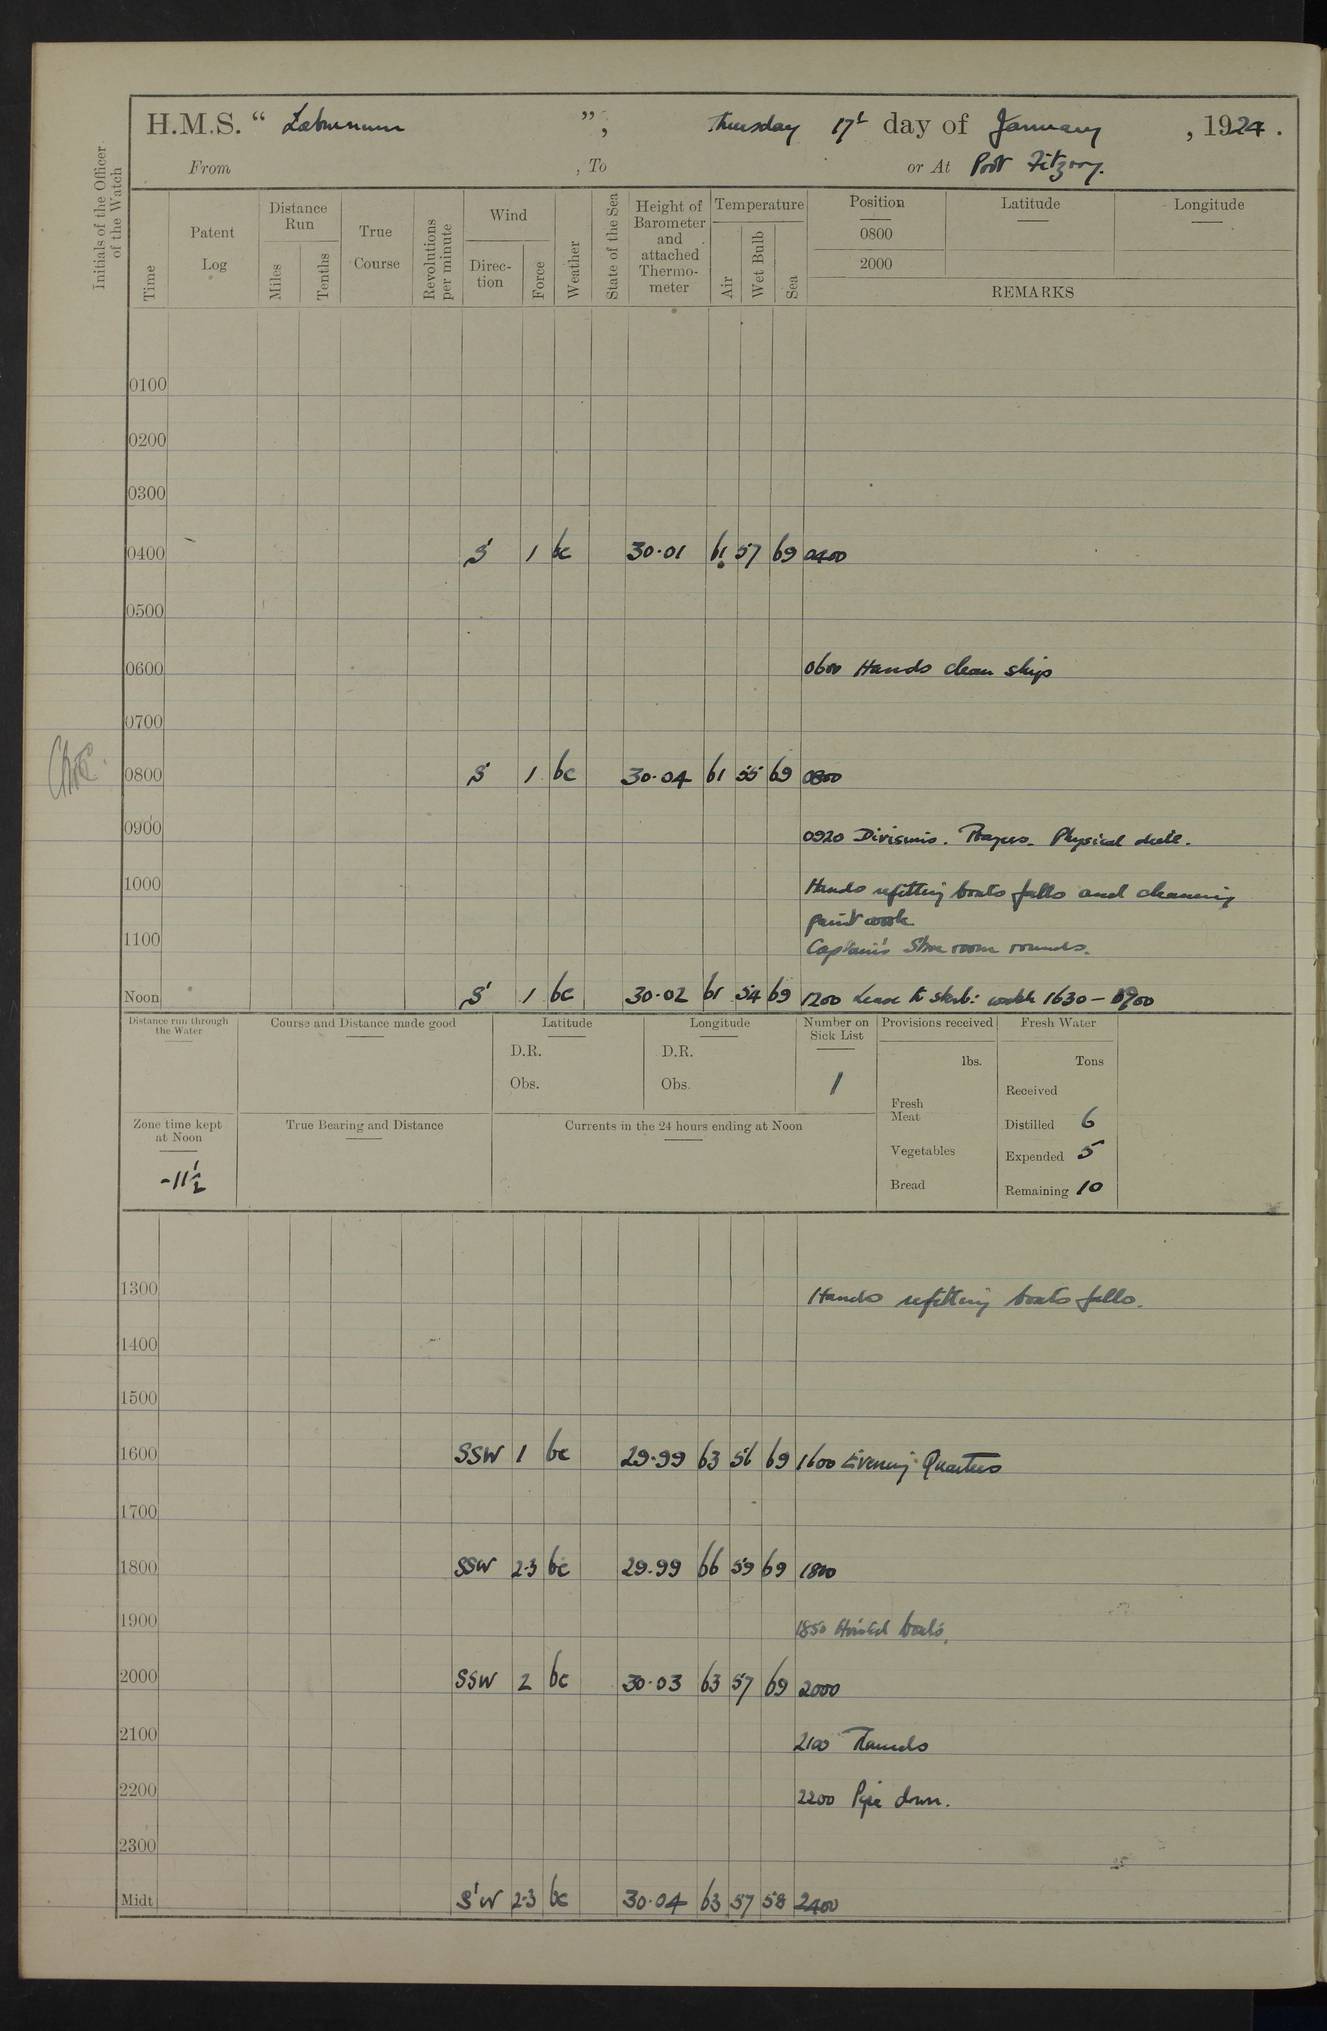 H.M.S. “ Laburnum ”, Thursday 17th day of January , 1924.
From , To or At Port Fitzroy.
Initials of the Officer of the Watch
Time
Patent Log
Distance Run
Miles
Tenths
True Course
Revolutions per minute
Wind
Direc-tion
Force
Weather
State of the Sea
Height of Barometer and attached Thermo-meter
Temperature
Air
Wet Bulb
Sea
Position
0800
2000
Latitude
Longitude
REMARKS
0100
0200
0300
0400 S' 1 bc 30.01 61 57 69 0400
0500
0600 0600 Hands clean ship
0700
0800 S' 1 bc 30.04 61 55 69 0800
0900 0920 Divisions. Prayers. Physical drill.
1000 Hands refitting boats falls and cleaning
paint work
1100 Captain's Store room rounds.
Noon S' 1 bc 30.02 61 54 69 1200 Leave to Starb: watch 1630 – 0700
Distance run through the Water
Course and Distance made good
Latitude
D.R.
Obs.
Longitude
D.R.
Obs.
Number on Sick List
1
Provisions received
lbs.
Fresh Meat
Vegetables
Bread
Fresh Water
Tons
Received
Distilled 6
Expended 5
Remaining 10
Zone time kept at Noon
-11½
True Bearing and Distance
Currents in the 24 hours ending at Noon
1300 Hands refitting boats falls.
1400
1500
1600 SSW 1 bc 29.99 63 56 69 1600 Evening Quarters
1700
1800 SSW 2-3 bc 29.99 66 59 69 1800
1900 1850 Hoisted boats.
2000 SSW 2 bc 30.03 63 57 69 2000
2100 2100 Rounds
2200 2200 Pipe down.
2300
Midt S'W 2-3 bc 30.04 63 57 58 2400